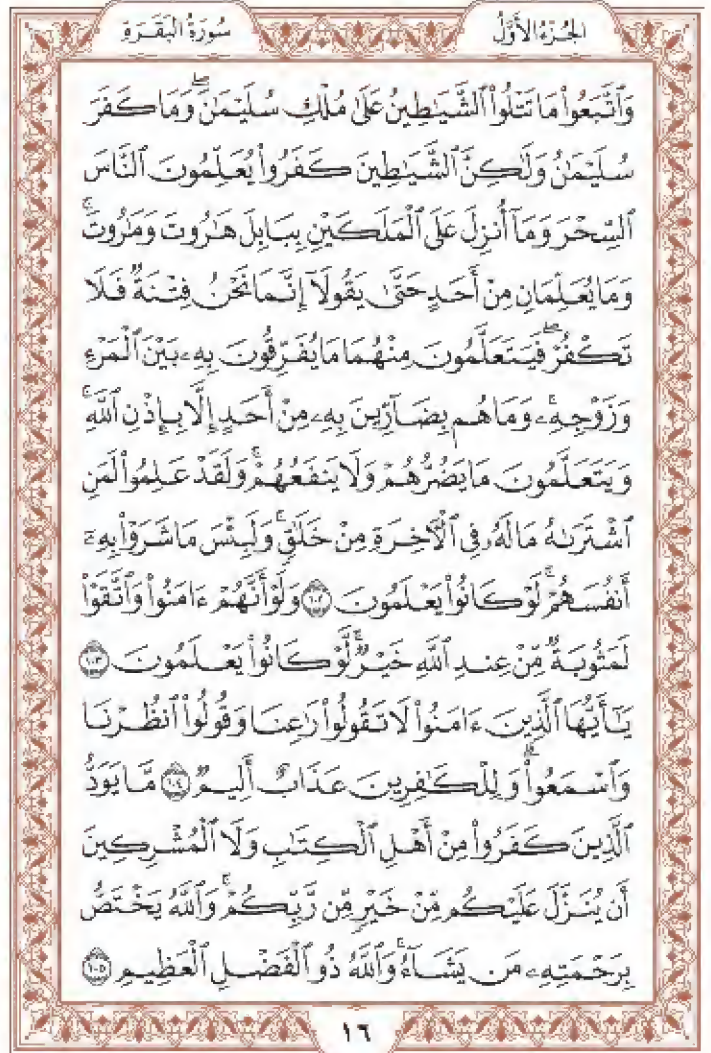 الجُزْءُ الأَوَّلُ
سُورَةُ البَقَرَةِ
وَٱتَّبَعُوا۟ مَا تَتْلُوا۟ ٱلشَّيَٰطِينُ عَلَىٰ مُلْكِ سُلَيْمَٰنَۖ وَمَا كَفَرَ
سُلَيْمَٰنُ وَلَٰكِنَّ ٱلشَّيَٰطِينَ كَفَرُوا۟ يُعَلِّمُونَ ٱلنَّاسَ
ٱلسِّحْرَ وَمَآ أُنزِلَ عَلَى ٱلْمَلَكَيْنِ بِبَابِلَ هَٰرُوتَ وَمَٰرُوتَۚ
وَمَا يُعَلِّمَانِ مِنْ أَحَدٍ حَتَّىٰ يَقُولَآ إِنَّمَا نَحْنُ فِتْنَةٌ فَلَا
تَكْفُرْۖ فَيَتَعَلَّمُونَ مِنْهُمَا مَا يُفَرِّقُونَ بِهِۦ بَيْنَ ٱلْمَرْءِ
وَزَوْجِهِۦۚ وَمَا هُم بِضَآرِّينَ بِهِۦ مِنْ أَحَدٍ إِلَّا بِإِذْنِ ٱللَّهِۚ
وَيَتَعَلَّمُونَ مَا يَضُرُّهُمْ وَلَا يَنفَعُهُمْۚ وَلَقَدْ عَلِمُوا۟ لَمَنِ
ٱشْتَرَىٰهُ مَا لَهُۥ فِى ٱلْءَاخِرَةِ مِنْ خَلَٰقٍۚ وَلَبِئْسَ مَا شَرَوْا۟ بِهِۦٓ
أَنفُسَهُمْۚ لَوْ كَانُوا۟ يَعْلَمُونَ ١٠٢ وَلَوْ أَنَّهُمْ ءَامَنُوا۟ وَٱتَّقَوْا۟
لَمَثُوبَةٌ مِّنْ عِندِ ٱللَّهِ خَيْرٌۖ لَّوْ كَانُوا۟ يَعْلَمُونَ ١٠٣
يَٰٓأَيُّهَا ٱلَّذِينَ ءَامَنُوا۟ لَا تَقُولُوا۟ رَٰعِنَا وَقُولُوا۟ ٱنظُرْنَا
وَٱسْمَعُوا۟ۗ وَلِلْكَٰفِرِينَ عَذَابٌ أَلِيمٌ ١٠٤ مَّا يَوَدُّ
ٱلَّذِينَ كَفَرُوا۟ مِنْ أَهْلِ ٱلْكِتَٰبِ وَلَا ٱلْمُشْرِكِينَ
أَن يُنَزَّلَ عَلَيْكُم مِّنْ خَيْرٍ مِّن رَّبِّكُمْۗ وَٱللَّهُ يَخْتَصُّ
بِرَحْمَتِهِۦ مَن يَشَآءُۚ وَٱللَّهُ ذُو ٱلْفَضْلِ ٱلْعَظِيمِ ١٠٥
١٦